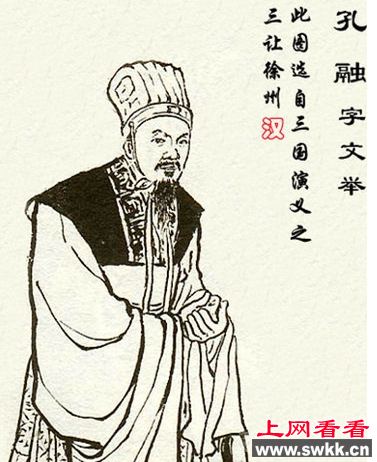 孔融字文举
此图选自三国演义之
三让徐州
汉
上网看看
www.swkk.cn